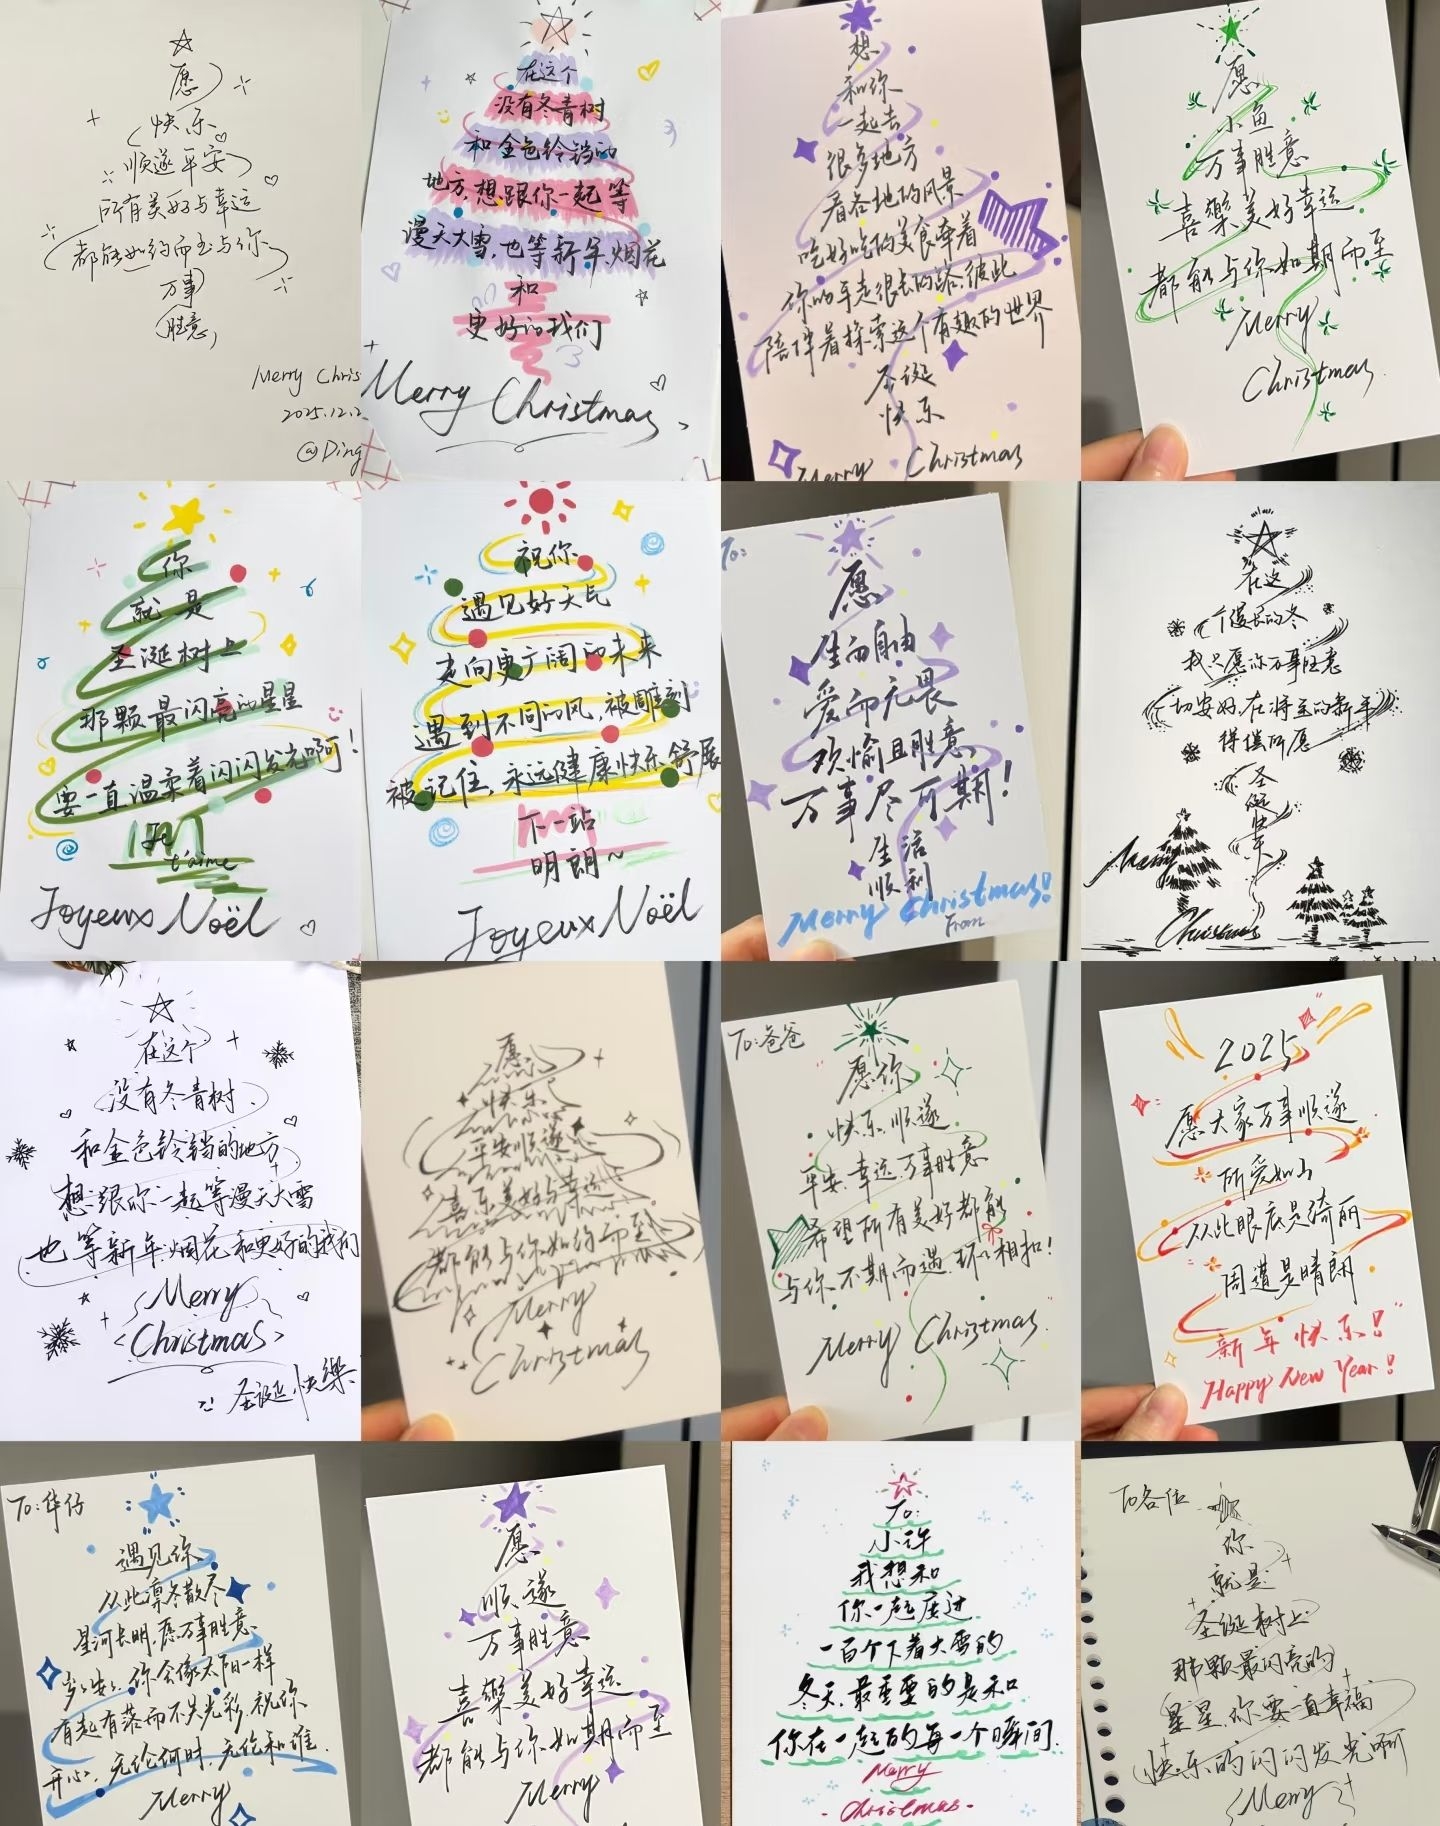 愿
快乐
顺遂平安
所有美好与幸运
都能如约而至与你
万事
胜意
Merry Chris
2025.12.2
@Ding
在这个
没有冬青树
和金色铃铛的
地方,想跟你一起等
漫天大雪,也等新年,烟花
和
更好的我们
Merry Christmas
想
和你
一起去
很多地方
看各地的风景
吃好吃的美食牵着
你的手走很长的路,彼此
陪伴着探索这个有趣的世界
圣诞
快乐
Merry Christmas
愿
小鱼
万事胜意
喜樂美好幸运
都能与你如期而至
Merry
Christmas
你
就是
圣诞树上
那颗最闪亮的星星
要一直温柔着闪闪发光啊!
Je
t'aime
Joyeux Noël
祝你
遇见好天气
走向更广阔的未来
遇到不同的风,被雕刻
被记住,永远健康快乐舒展
下一站
明朗~
Joyeux Noël
To:
愿
生而自由
爱而无畏
欢愉且胜意,
万事尽可期!
生活
顺利
Merry Christmas!
From
在这
个漫长的冬
我只愿你万事胜意
一切安好,在将至的新年
得偿所愿
圣
诞
快
乐
Merry
Christmas
在这个
没有冬青树
和金色铃铛的地方
想跟你一起等漫天大雪
也等新年,烟花和更好的我们
Merry
Christmas
圣诞快樂
愿
快乐
平安顺遂
喜乐美好与幸运
都能与你如约而至
Merry
Christmas
To:爸爸
愿你
快乐,顺遂
平安,幸运,万事胜意
希望所有美好都能
与你不期而遇,环环相扣!
Merry Christmas.
2025
愿大家万事顺遂
所爱如山
从此眼底是绮丽
周遭是晴朗
新年快乐!
Happy New Year!
To:华仔
遇见你
从此凛冬散尽
星河长明,愿万事胜意
岁岁安,你会像太阳一样
有起有落而不失光彩,祝你
开心,无论何时,无论和谁.
Merry
愿
顺遂
万事胜意
喜樂美好幸运
都能与你如期而至
Merry
To:
小许
我想和
你一起度过
一百个下着大雪的
冬天,最重要的是和
你在一起的每一个瞬间.
Merry
-Christmas-
To各位
你
就是
圣诞树上
那颗最闪亮的
星星,你要一直幸福
快乐的闪闪发光啊
Merry